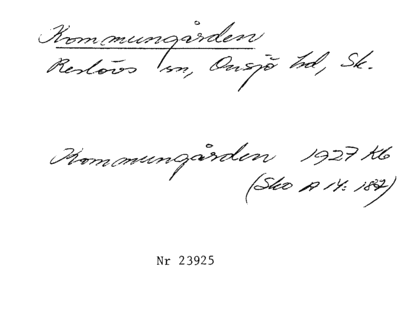 Kommungården
Reslövs sn, Onsjö hd, Sk.
Kommungården 1927 Kb
(Sko A 14: 187)
Nr 23925